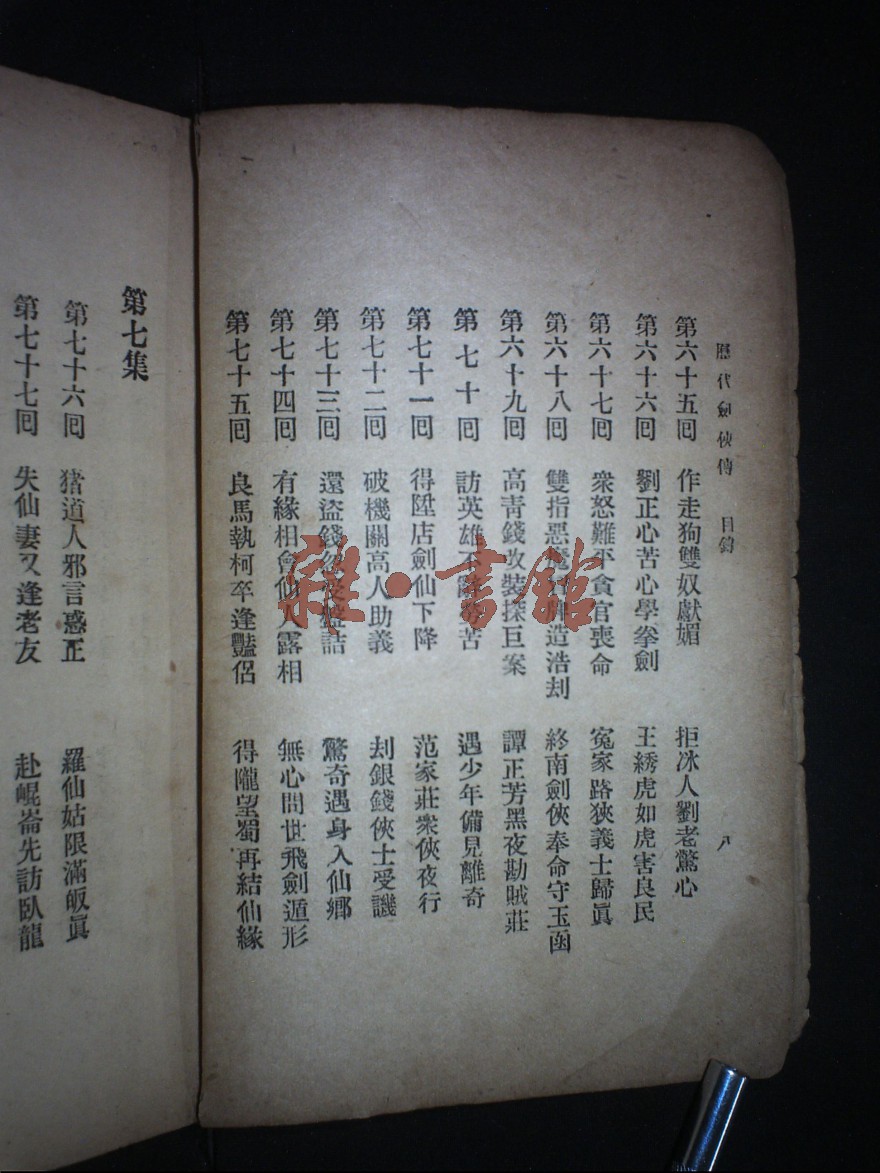 歷代劍俠傳 目錄 八
第六十五回 作走狗雙奴獻媚 拒冰人劉老驚心
第六十六回 劉正心苦心學拳劍 王綉虎如虎害良民
第六十七回 衆怒難平貪官喪命 寃家路狹義士歸眞
第六十八回 雙指惡魔 造浩刦 終南劍俠奉命守玉函
第六十九回 高青錢改裝探巨案 譚正芳黑夜勘賊莊
第七十回 訪英雄不辭勞苦 遇少年備見離奇
第七十一回 得陞店劍仙下降 范家莊衆俠夜行
第七十二回 破機關高人助義 刦銀錢俠士受譏
第七十三回 還盜錢忽受盤詰 驚奇遇身入仙鄉
第七十四回 有緣相會仙人露相 無心問世飛劍遁形
第七十五回 良馬執柯卒逢豔侶 得隴望蜀再結仙緣
第七集
第七十六回 猪道人邪言惑正 羅仙姑限滿皈眞
第七十七回 失仙妻又逢老友 赴崐崙先訪臥龍
雜·書館